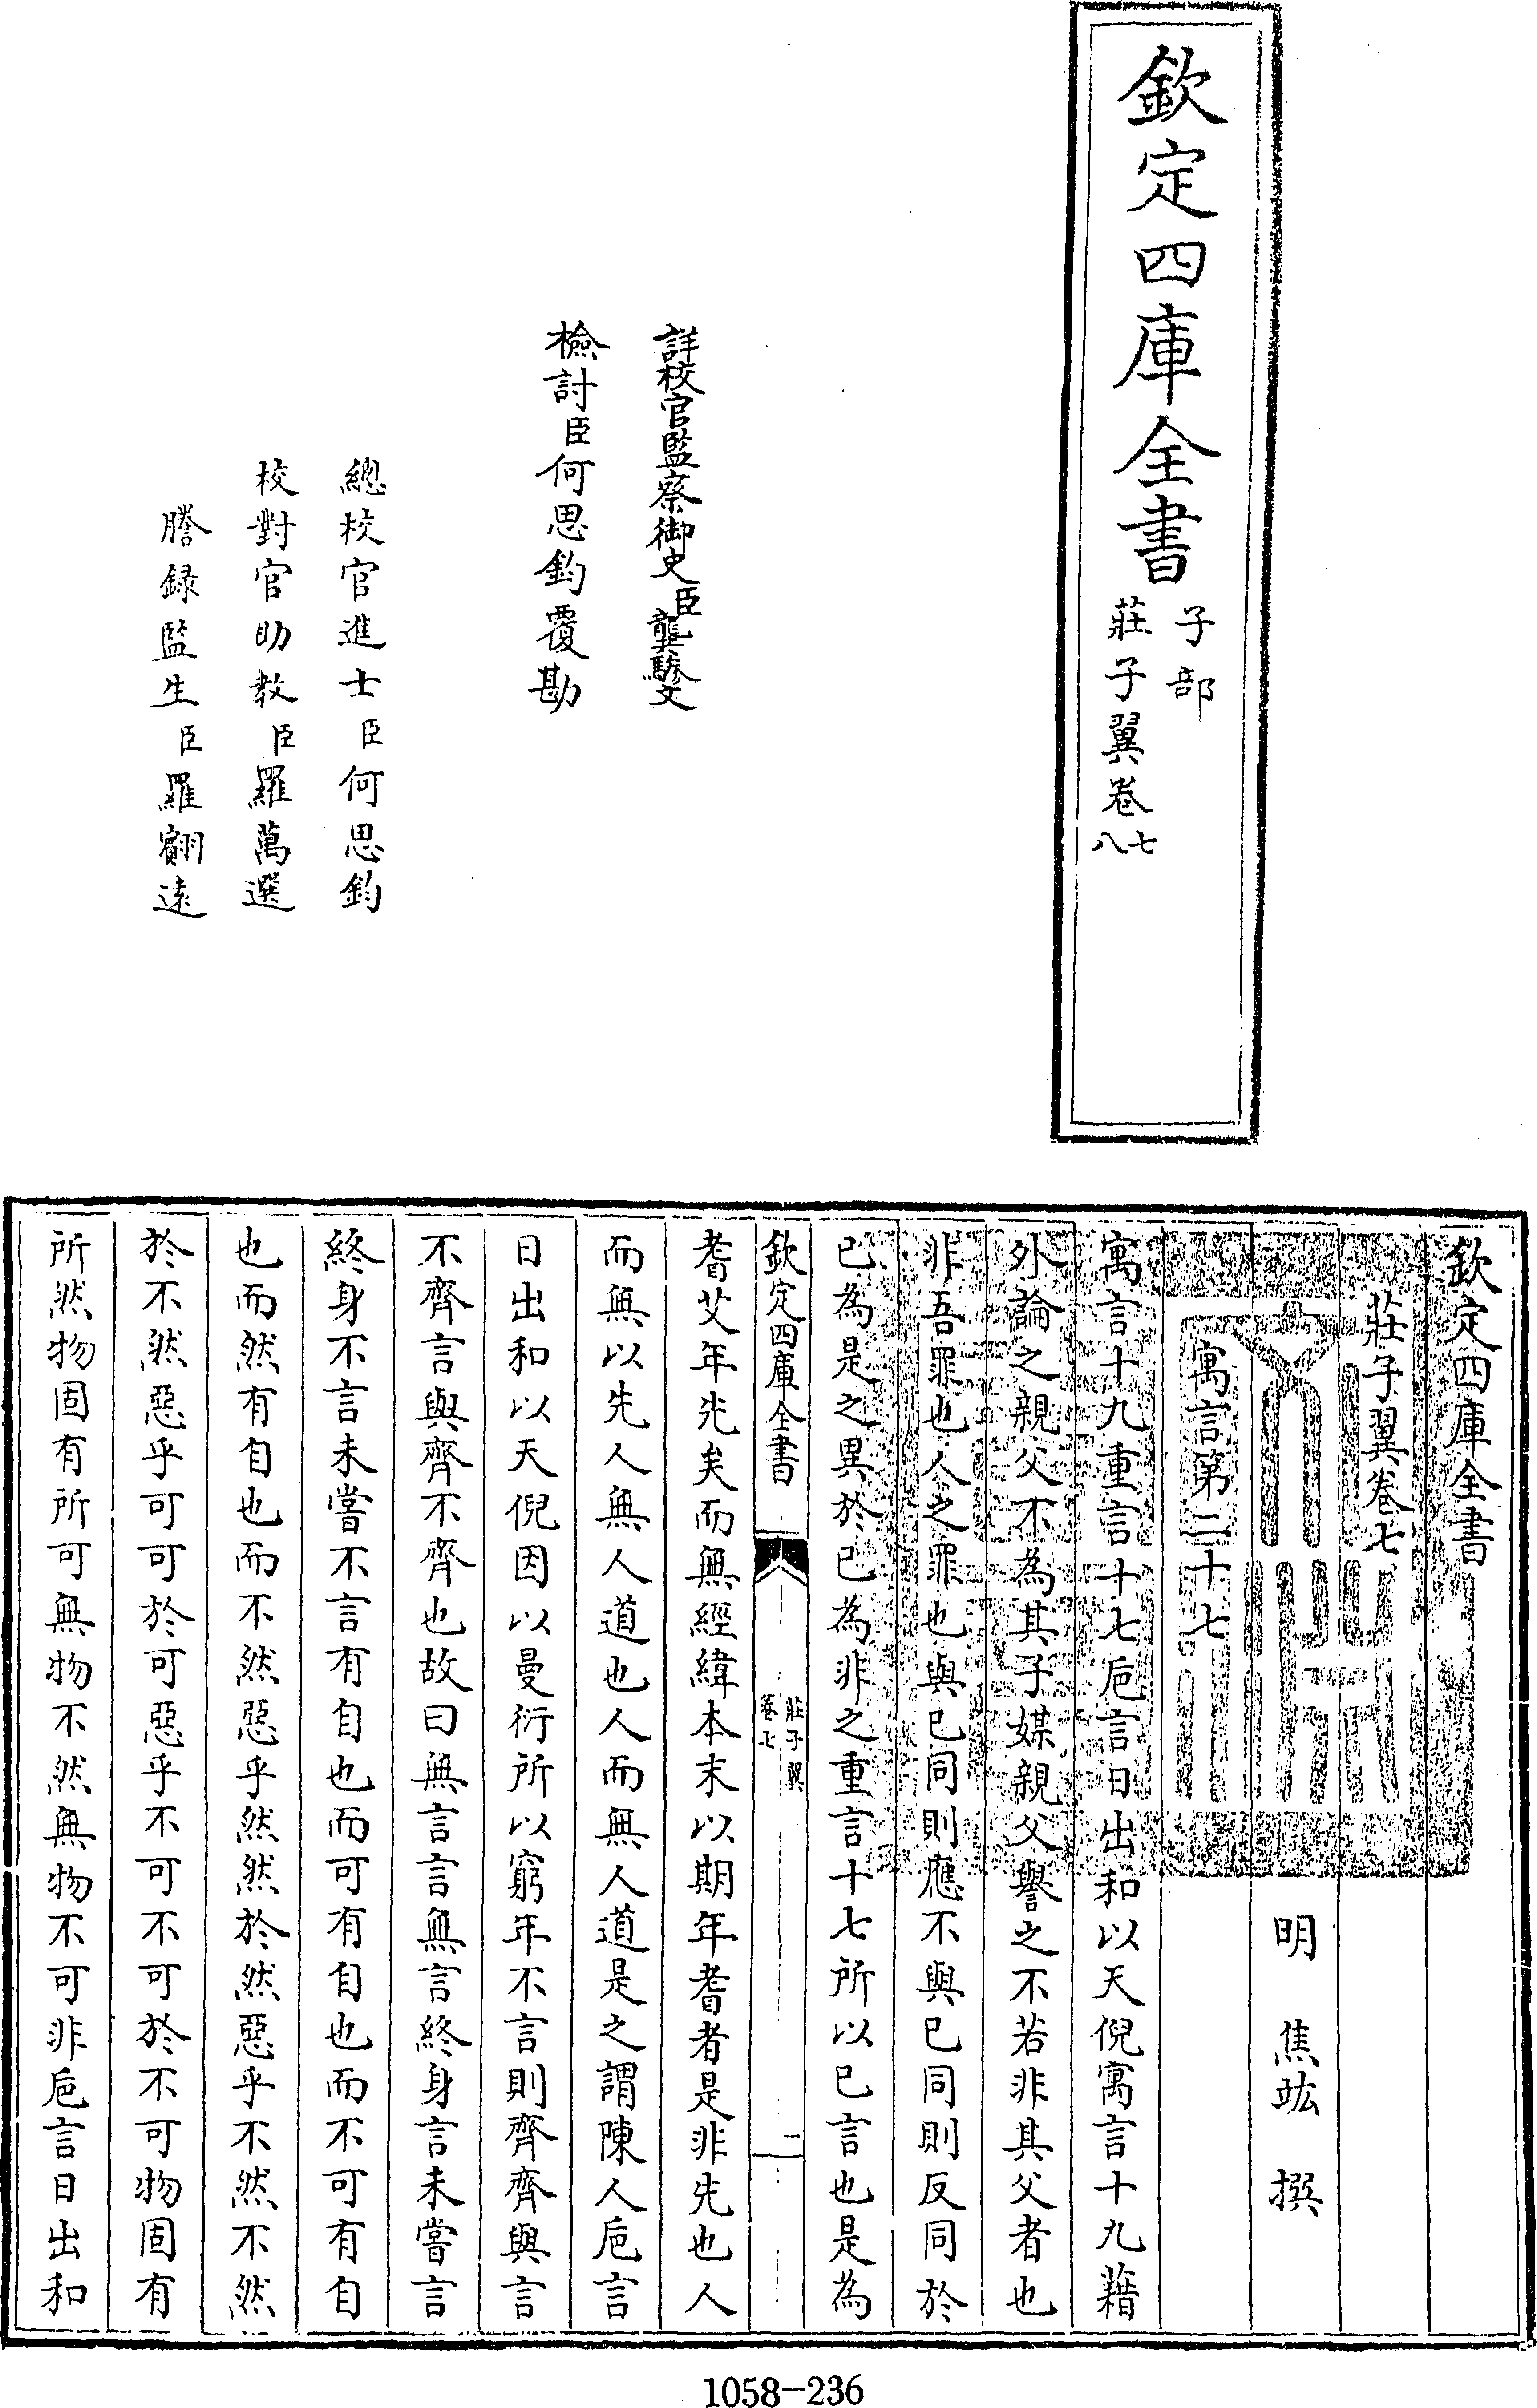 欽定四庫全書
子部
莊子翼卷七
八
詳校官監察御史臣龔驂文
檢討臣何思鈞覆勘
總校官進士臣何思鈞
校對官助教臣羅萬選
謄録監生臣羅翽遠
欽定四庫全書
莊子翼卷七
明 焦竑 撰
寓言第二十七
寓言十九重言十七巵言日出和以天倪寓言十九藉
外論之親父不為其子媒親父譽之不若非其父者也
非吾罪也人之罪也與已同則應不與已同則反同於
已為是之異於已為非之重言十七所以已言也是為
欽定四庫全書
莊子翼
卷七
一
耆艾年先矣而無經緯本末以期年耆者是非先也人
而無以先人無人道也人而無人道是之謂陳人巵言
日出和以天倪因以曼衍所以窮年不言則齊齊與言
不齊言與齊不齊也故曰無言言無言終身言未嘗言
終身不言未嘗不言有自也而可有自也而不可有自
也而然有自也而不然惡乎然然於然惡乎不然不然
於不然惡乎可可於可惡乎不可不可於不可物固有
所然物固有所可無物不然無物不可非巵言日出和
1058-236